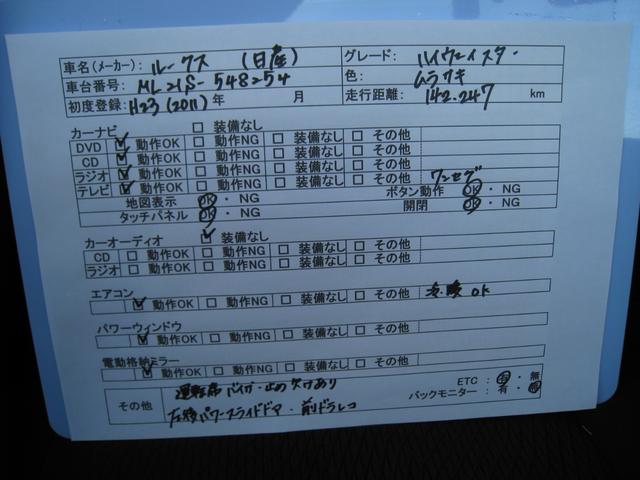 車名(メーカー): ルークス (日産) グレード: ハイウェイスター
車台番号: ML21S-548254 色: ムラサキ
初度登録 H23(2011)年 月 走行距離: 142.247 km
カーナビ □ 装備なし
DVD ☑ 動作OK □ 動作NG □ 装備なし □ その他
CD ☑ 動作OK □ 動作NG □ 装備なし □ その他
ラジオ ☑ 動作OK □ 動作NG □ 装備なし □ その他
テレビ ☑ 動作OK □ 動作NG □ 装備なし □ その他 ワンセグ
地図表示 OK ・ NG ボタン動作 OK ・ NG
タッチパネル OK ・ NG 開閉 OK ・ NG
カーオーディオ ☑ 装備なし
CD □ 動作OK □ 動作NG □ 装備なし □ その他
ラジオ □ 動作OK □ 動作NG □ 装備なし □ その他
エアコン
☑ 動作OK □ 動作NG □ 装備なし □ その他 冷・暖 OK
パワーウィンドウ
☑ 動作OK □ 動作NG □ 装備なし □ その他
電動格納ミラー
☑ 動作OK □ 動作NG □ 装備なし □ その他
その他 運転席バイザー止め欠けあり ETC : 有 ・ 無
左後パワースライドドア・前ドラレコ バックモニター: 有 ・ 無